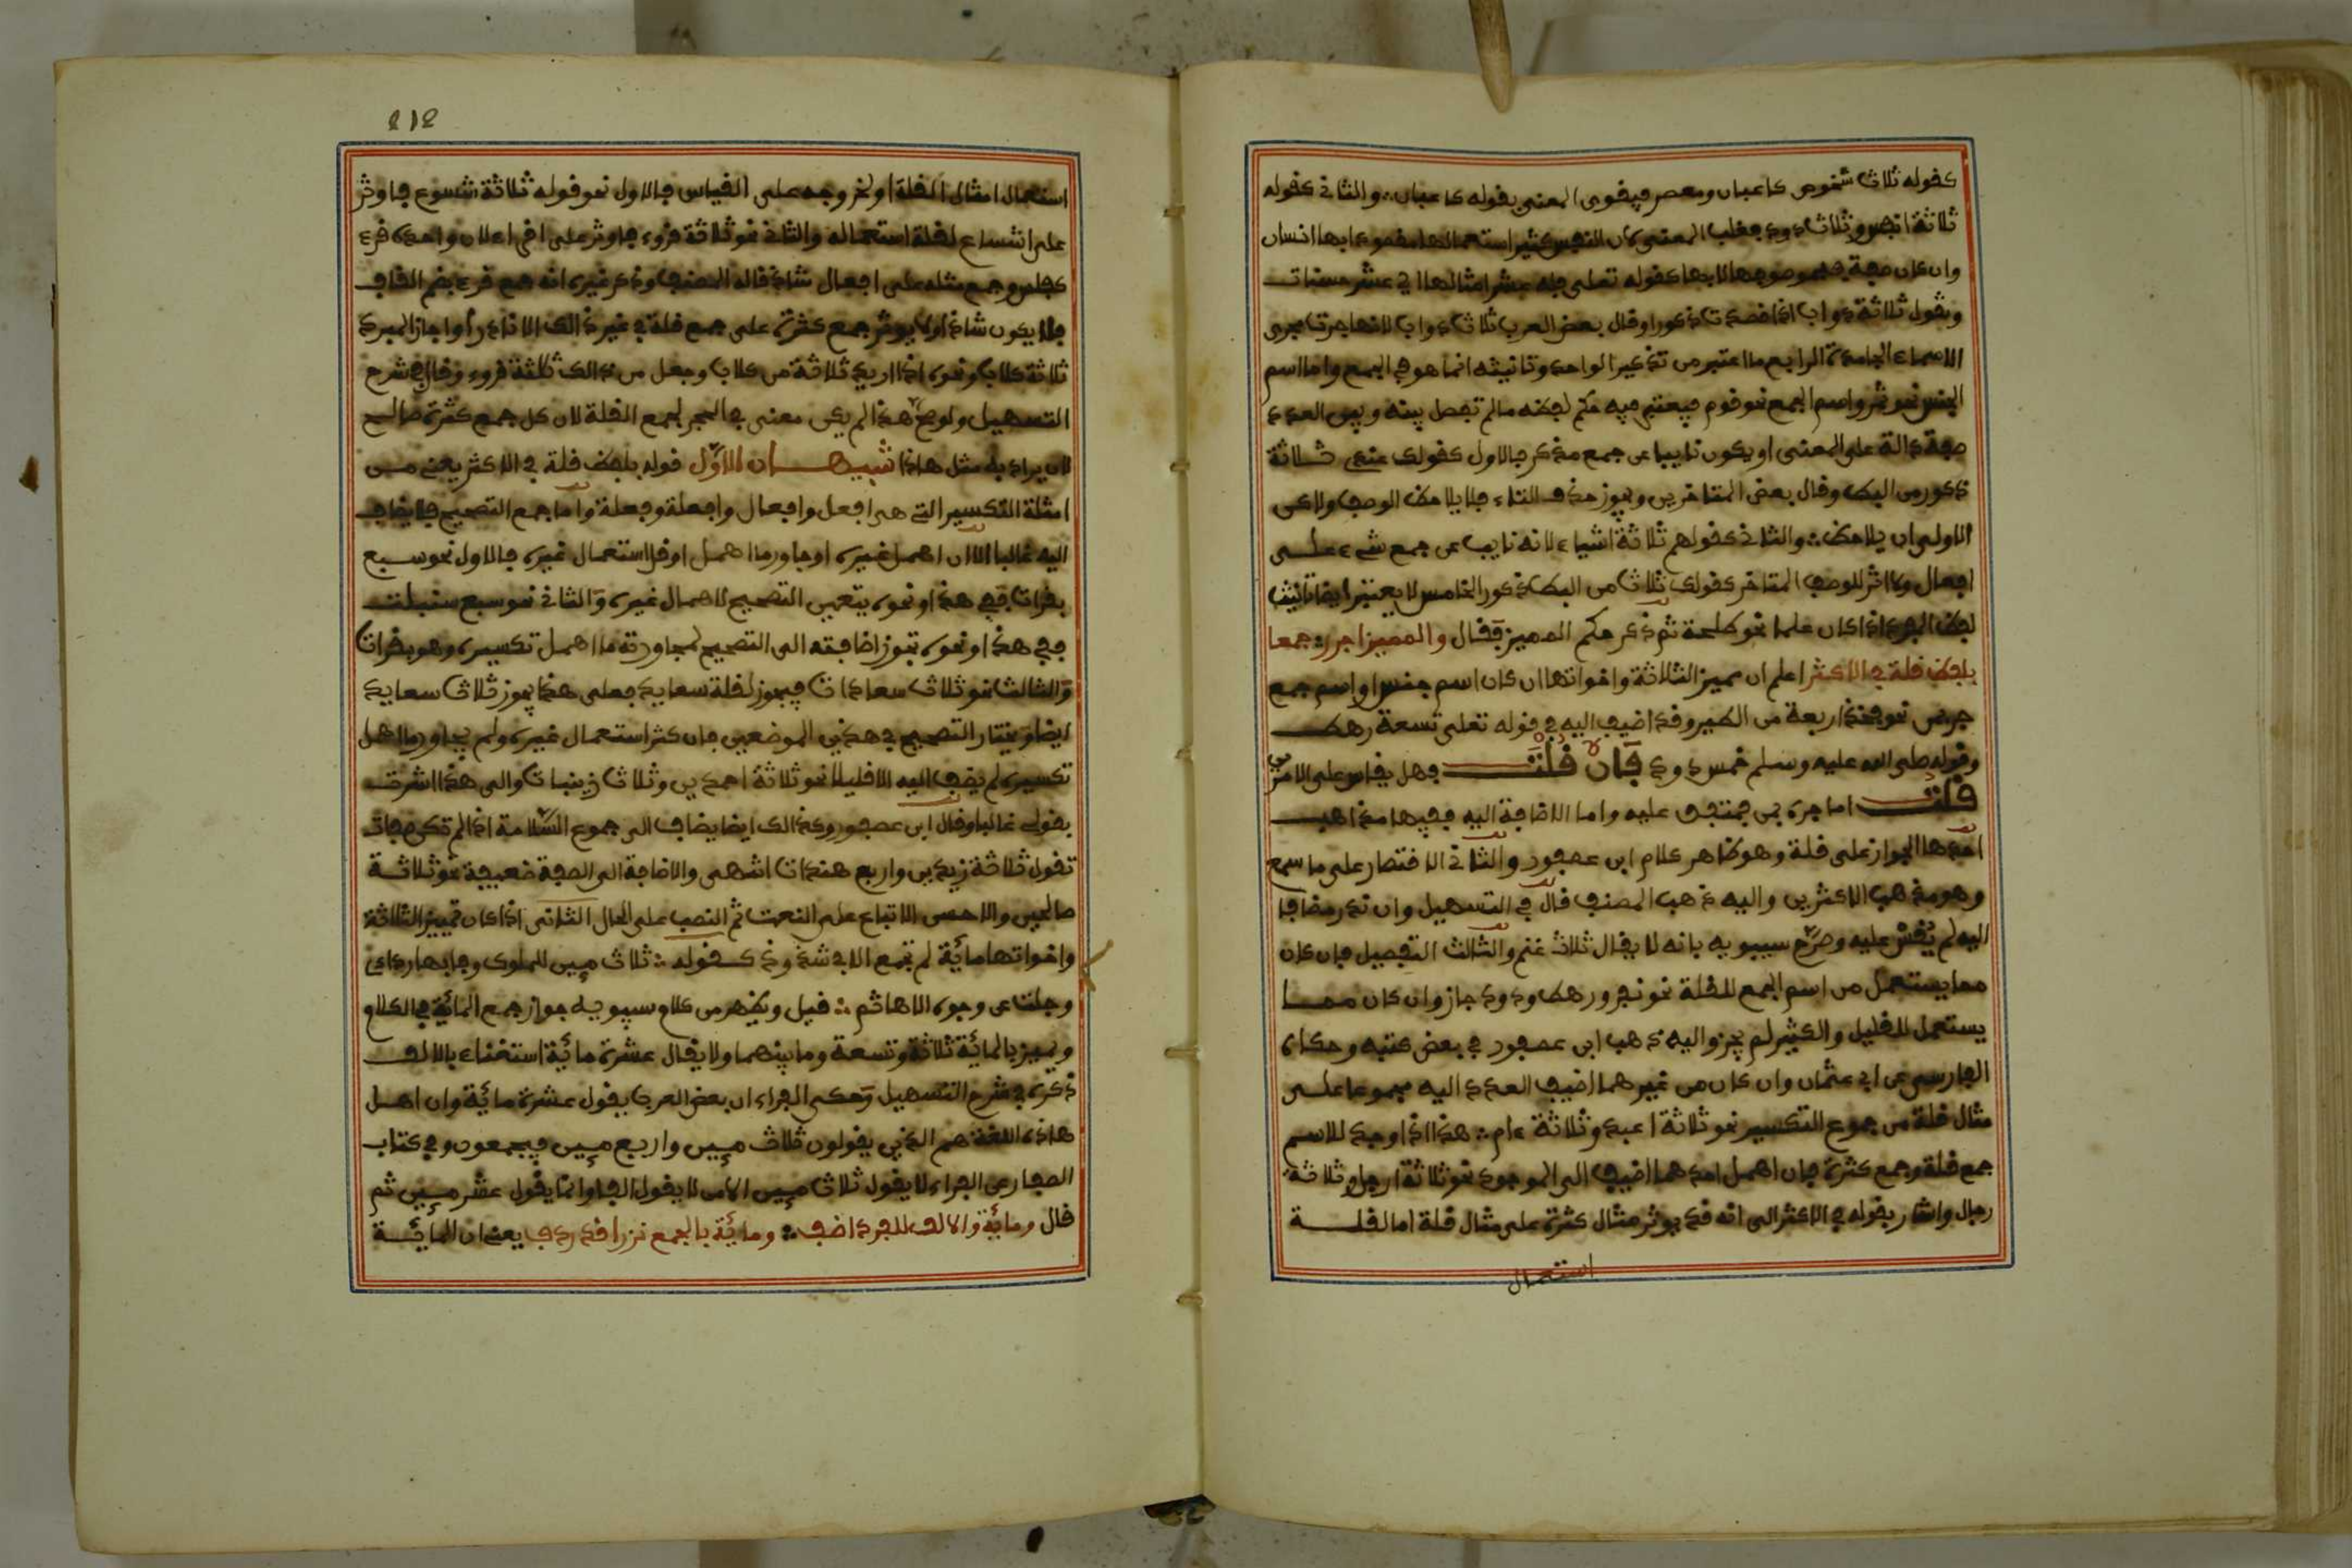 كقوله ثلاث شخوص كاعبان ومعصر فيقوى المعنى بقوله كاعبان والثاني كقوله
ثلاثة انفس وثلاث ذود فغلب المعنى لان النفس كثير استعمالها مقصودا بها انسان
وان كان صفة فبموصوفها لا بها كقوله تعلى فله عشر امثالها اي عشر حسنات
وتقول ثلاثة دواب اذا قصدت ذكورا وقال بعض العرب ثلاث دواب لانها جرت مجرى
الاسماء الجامدة الرابع ما اعتبر من تذكير الواحد وتانيثه انما هو في الجمع واما اسم
الجنس نحو واسم الجمع نحو قوم فيعتبر فيه حكم لفظه مالم تفصل بينه وبين العدد
صفة دالة على المعنى او يكون نايبا عن جمع مذكر فالاول كقولك عندي ثلاثة
ذكور من البط وقال بعض المتاخرين ويجوز حذف التاء فلا يلاحظ الوصف ولاكن
الاولى ان يلاحظ والثاني كقولهم ثلاثة اشياء لانه نايب عن جمع شيء على
افعال ولا اثر للوصف المتاخر كقولك ثلاث من البط ذكور الخامس لا يعتبر ايضا تانيث
لفظ المفرد اذا كان علما نحو طلحة ثم ذكر حكم المميز فقال والمميز اجرر جمعا
بلفظ قلة في الاكثر اعلم ان مميز الثلاثة واخواتها ان كان اسم جنس او اسم جمع
جر بمن نحو فخذ اربعة من الطير وقد اضيف اليه في قوله تعلى تسعة رهط
وقوله صلى الله عليه وسلم خمس ذود فان قلت فهل يقاس على الامرين
قلت اما جره بمن فمتفق عليه واما الاضافة اليه ففيها مذاهب
احدها الجواز على قلة وهو ظاهر كلام ابن عصفور والثاني الاقتصار على ما سمع
وهو مذهب الاكثرين واليه ذهب المصنف قال في التسهيل وان ندر مضافا
اليه لم يقس عليه وصرح سيبويه بانه لا يقال ثلاث غنم والثالث التفصيل فان كان
مما يستعمل من اسم الجمع للقلة نحو نفر ورهط وذود جاز وان كان مما
يستعمل للقليل والكثير لم يجز واليه ذهب ابن عصفور في بعض كتبه وحكاه
الفارسي عن ابي عثمان وان كان من غيرهما اضيف العدد اليه مجموعا على
مثال قلة من جموع التكسير نحو ثلاثة اعبد وثلاثة ءام هذا اذا وجد للاسم
جمع قلة وجمع كثرة فان اهمل احدهما اضيف الى الموجود نحو ثلاثة ارجل وثلاثة
رجال واشار بقوله في الاكثر الى انه قد يوثر مثال كثرة على مثال قلة اما لقلة
استعمال
٤١٤
استعمال امثال القلة او لخروجه على القياس فالاول نحو قوله ثلاثة شسوع فاوثر
على اشساع لقلة استعماله والثاني نحو ثلاثة قروء فاوثر على اقراء لان واحده قرء
كفلس وجمع مثله على افعال شاذ قاله المصنف وذكر غيره انه جمع قرء بضم القاف
فلا يكون شاذا ولا يوثر جمع كثرة على جمع قلة في غير ذالك الا نادرا واجاز المبرد
ثلاثة كلاب ونحوه اذا اريد ثلاثة من كلاب وجعل من ذالك ثلثة قروء وقال في شرح
التسهيل ولو صح هذا لم يكن معنى في الحجر لجمع القلة لان كل جمع كثرة صالح
لان يراد به مثل هاذا تنبيهان الاول قوله بلفظ قلة في الاكثر يعني من
امثلة التكسير التي هي افعل وافعال وافعلة وفعلة واما جمع التصحيح فلا يضاف
اليه غالبا الا ان اهمل غيره او جاور ما اهمل او قل استعمال غيره فالاول نحو سبع
بقرات ففي هذا ونحوه يتعين التصحيح لاهمال غيره والثاني نحو سبع سنبلت
ففي هذا ونحوه تجوز اضافته الى التصحيح لمجاورته ما اهمل تكسيره وهو بقرات
والثالث نحو ثلاث سعادات فيجوز لقلة سعايد فعلى هذا يجوز ثلاث سعايد
ايضا ويختار التصحيح في هذين الموضعين فان كثر استعمال غيره ولم يجاور ما اهمل
تكسيره لم يضف اليه الا قليلا نحو ثلاثة احمدين وثلاث زينبات والى هذا اشرت
بقولي غالبا وقال ابن عصفور وكذالك ايضا يضاف الى جموع السلامة اذا لم تكن صفات
تقول ثلاثة زيدين واربع هندات اشهى والاضافة الى الصفة ضعيفة نحو ثلاثة
صالحين والاحسن الاتباع على النعت ثم النصب على الحال الثاني اذا كان تمييز الثلاثة
واخواتها مائة لم تجمع الا في شذوذ كقوله ثلاث ميين للملوك وفى بها رداءي
وجلت عن وجوه الاهاتم قيل ويظهر من كلام سيبويه جواز جمع المائة في الكلام
ويميز بالمائة ثلاثة وتسعة وما بينهما ولا يقال عشرة مائة استغناء بالالف
ذكره في شرح التسهيل وحكى الفراء ان بعض العرب يقول عشرة مائة وان اهل
هاذه اللغة هم الذين يقولون ثلاث ميين واربع ميين فيجمعون وفي كتاب
الصفار عن الفراء لا يقول ثلاث ميين الا من لا يقول الفا وانما يقول عشر ميين ثم
قال ومائة والالف للفرد اضف ومائة بالجمع نزرا قد ردف يعني ان المائة